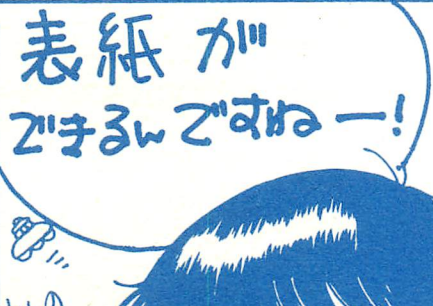 表紙が
できるんですねー!